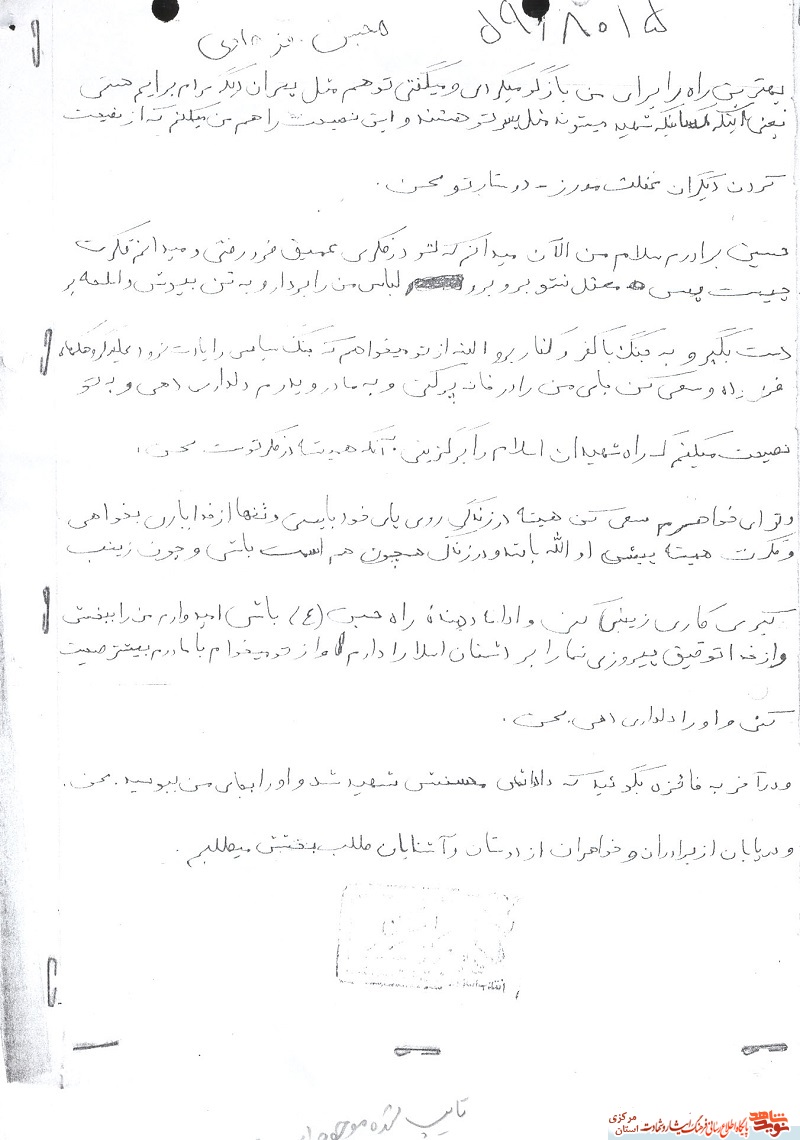 ۵۹۱۸۰۱۵
محسن
بهترین راه را برای من بازگو میکردی و میگفتی تو هم مثل پسران دیگر برایم هستی
یعنی اینکه کسانیکه شهید میشوند مثل پسر تو هستند و این نصیحت را هم من میکنم که از نصیحت
کردن دیگران غفلت مورز - دوستدار تو محسن .
حسین برادرم سلام من الآن میدانم که تو در فکری عمیق فرو رفتی و میدانم فکرت
چیست پس معطل نشو برو برو لباس من را بردار و به تن بپوش و اسلحه بر
دست بگیر و به جنگ با کفر و کفار برو البته از تو میخواهم که جنگ سیاسی را یادت نرود
و سعی کن جای من را در خانه پر کن و به مادر و پدرم دلداری دهی و به تو
نصیحت میکنم که راه شهیدان اسلام را برگزینی . آنکه همیشه در فکر توست محسن .
و تو ای خواهرم سعی کن همیشه در زندگی روی پای خود بایستی و تنها از خدا یاری بخواهی
و فکرت همیشه پیش الله باشد و در زندگی همچون هم اسمت باشی و چون زینب
کبری کاری زینبی کنی و ادامه دهنده راه حسین (ع) باشی امیدوارم من را ببخش
و از خدا توفیق پیروزی شما را بر دشمنان اسلام را دارم و از تو میخواهم با مادرم بیشتر صحبت
کنی و او را دلداری دهی . محسن .
و در آخر به فائزه بگوئید که دائی محسنش شهید شد و او را بجای من ببوسید . محسن .
و در پایان از برادران و خواهران از دوستان و آشنایان طلب بخشش میطلبم .
تایپ شده موجود
نوید شاهد
پایگاه اطلاع رسانی فرهنگ ایثار و شهادت
استان مرکزی